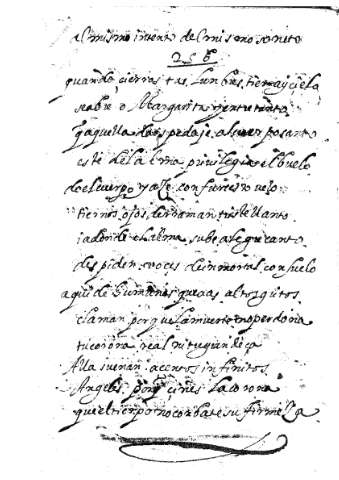 al mismo intento del mismo soneto
256
quando cierras tas lunbres, tierra y cielo
se abre o Margarita y entretanto
q aquella da ospedaje al cuerpo santo
este de la alma privilegia el buelo
do el cuerpo yaze con funesto velo
tiernos ojos derraman triste llanto
i adonde el alma sube alegre canto
despiden voces de inmortal consuelo
aqui de humanos quexas altos gritos
claman porque la muerte no perdona
tu corona real ni tu
Alla suenan acentos infinitos
Angeles porq ciñes la corona
que el tienpo no conbate su firmeza